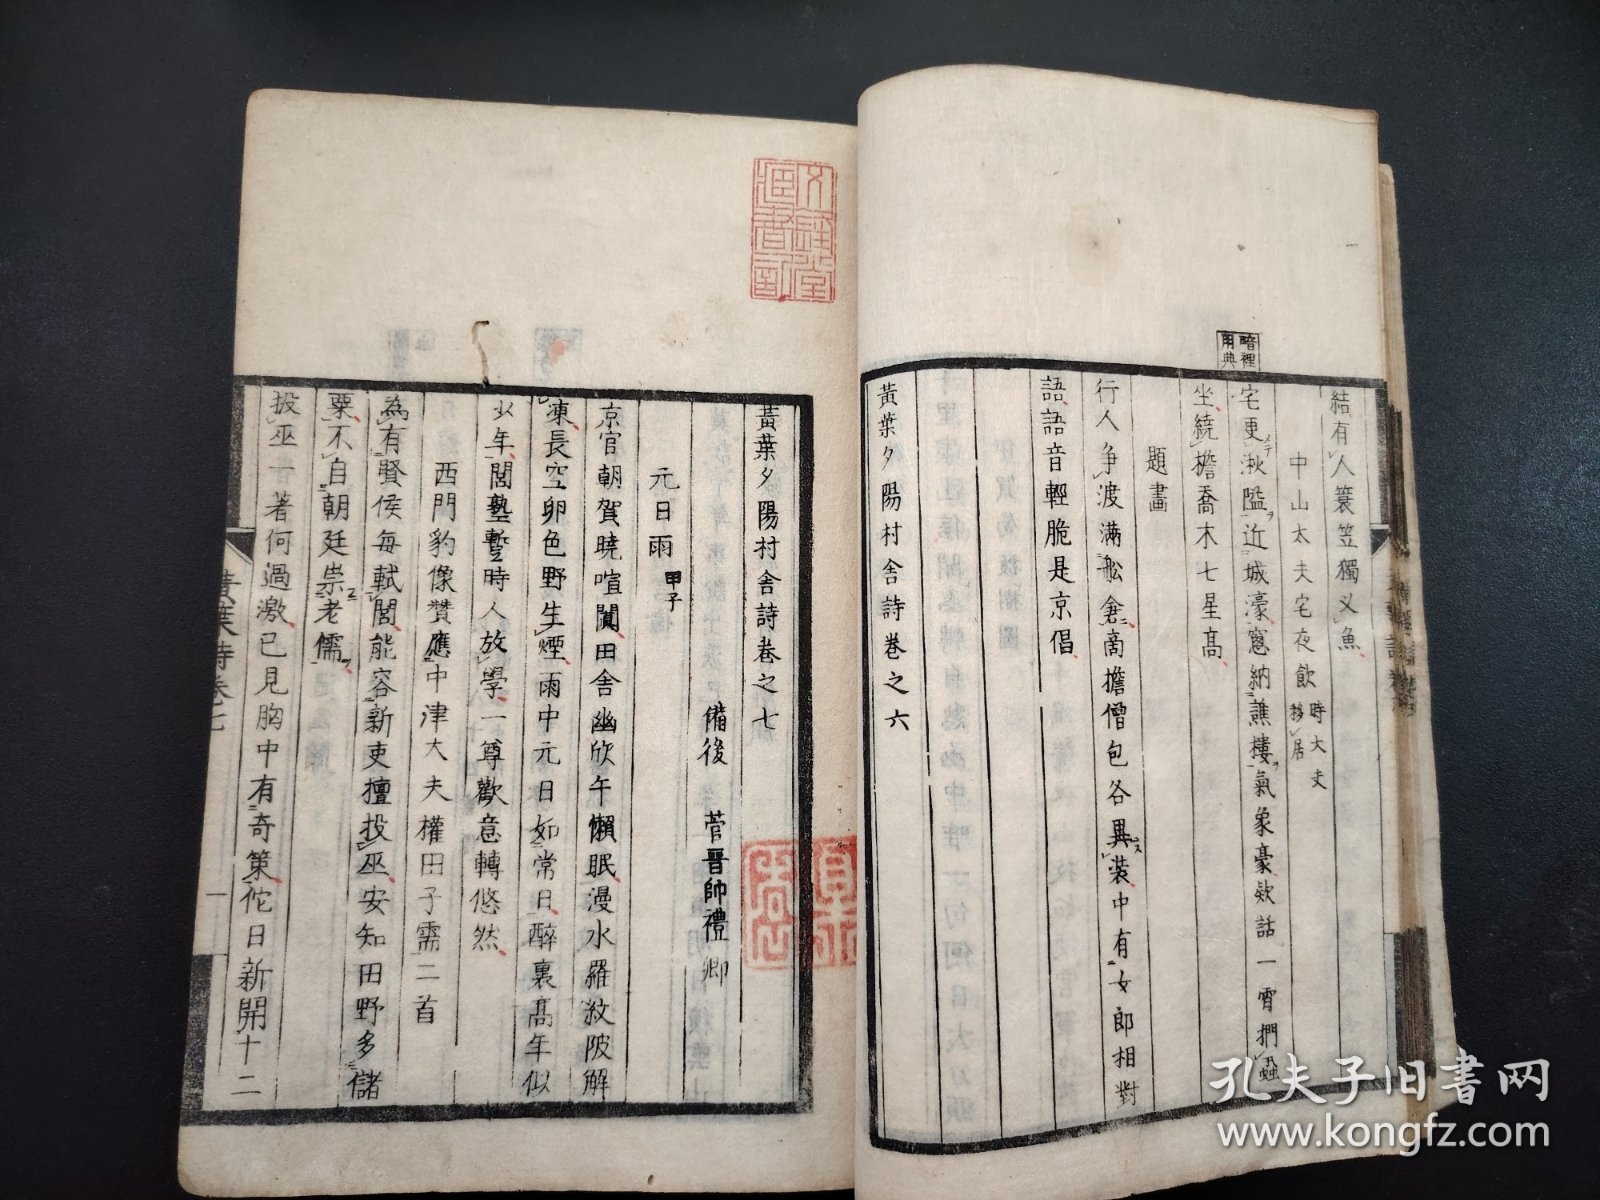 結有人簑笠獨乂魚
中山太夫宅夜飲 時大夫移居
暗裡用典
宅更湫隘近城濠窓納譙樓氣象豪欸話一霄捫蝨
坐繞檐喬木七星髙
題畫
行人争渡満舩倉商擔僧包各異装中有女郎相對
語語音輕脆是京倡
黄葉夕陽村舎詩巻之六
黄葉夕陽村舎詩巻之七
備後 菅晋帥禮卿
元日雨 甲子
京官朝賀曉喧闐田舎幽欣午懶眠漫水羅紋陂解
凍長空卵色野生煙雨中元日如常日醉裏髙年似
少年閭塾暫時人放學一尊歡意轉悠然
西門豹像贊應中津大夫權田子需二首
為有賢侯毎軾閭能容新吏擅投巫安知田野多儲
粟不自朝廷崇老儒
投巫一著何過激已見胸中有奇策佗日新開十二
黄葉詩巻七
一
孔夫子旧書网
www.kongfz.com